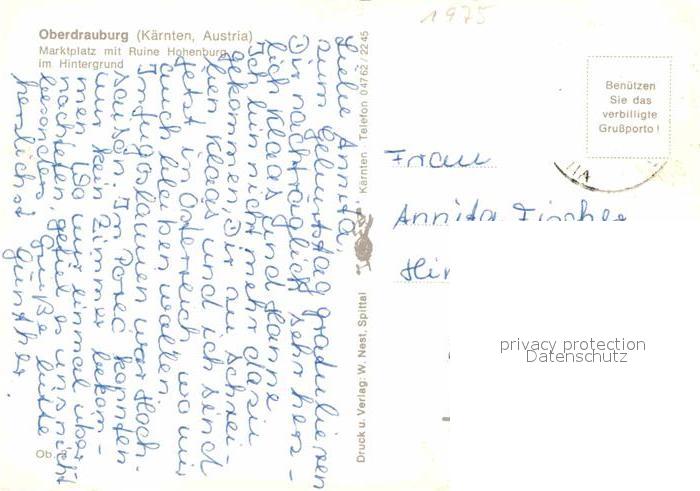 1975
Oberdrauburg (Kärnten, Austria)
Marktplatz mit Ruine Hohenburg
im Hintergrund
Liebe Annita,
zum Geburtstag gratulieren
Dir nachträglich sehr herz-
lich Klaas und Hanne
Ich bin nicht mehr dazu
gekommen, Dir zu schrei-
ben Klaas und ich sind
jetzt in Österreich wo wir
auch bleiben wollen.
In Jugoslawien war Hoch-
saison. In Porec konnten
wir kein Zimmer bekom-
men wo wir einmal über-
nachteten, gefiel es uns nicht
besonders. Grüße bitte
herzlichst Günther
Ob. 2
Druck u. Verlag: W. Nest, Spittal
Kärnten · Telefon 0 47 62 / 22 45
Benützen
Sie das
verbilligte
Grußporto!
Frau
Annita Fischer
privacy protection
Datenschutz